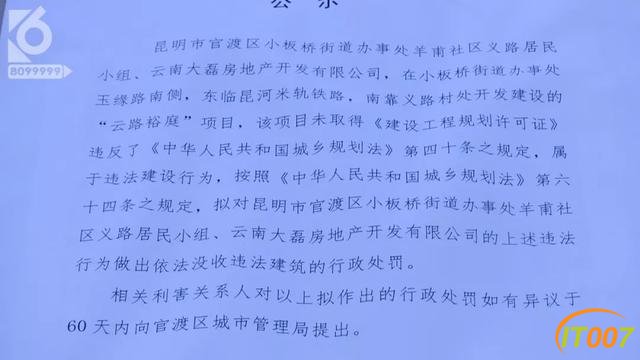 公 示
K6
8099999
昆明市官渡区小板桥街道办事处羊甫社区义路居民
小组、云南大磊房地产开发有限公司，在小板桥街道办事处
玉缘路南侧，东临昆河米轨铁路，南靠义路村处开发建设的
“云路裕庭”项目，该项目未取得《建设工程规划许可证》
违反了《中华人民共和国城乡规划法》第四十条之规定，属
于违法建设行为，按照《中华人民共和国城乡规划法》第六
十四条之规定，拟对昆明市官渡区小板桥街道办事处羊甫社
区义路居民小组、云南大磊房地产开发有限公司的上述违法
行为做出依法没收违法建筑的行政处罚。
相关利害关系人对以上拟作出的行政处罚如有异议于
60天内向官渡区城市管理局提出。
IT007